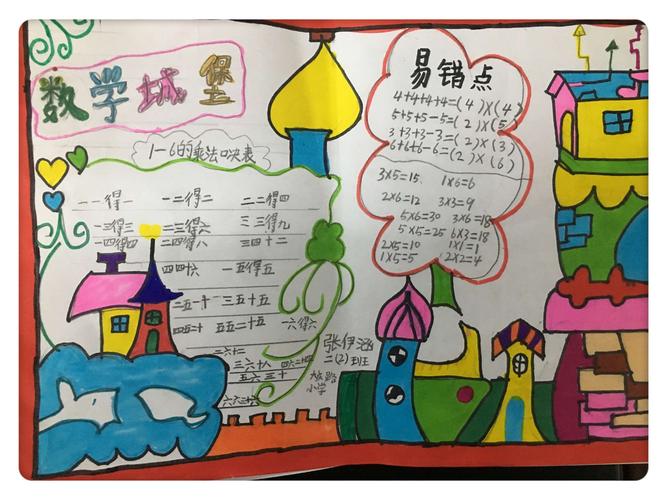 数学城堡
1-6的乘法口决表
一一得一 一二得二 二二得四
一三得三 二三得六 三三得九
一四得四 二四得八 三四十二
四四十六 一五得五
二五一十 三五十五
四五二十 五五二十五 一六得六
二六十二
三六十八 四六二十四
五六三十
六六三十六
易错点
4+4+4+4=(4)×(4)
5+5+5-5=(2)×(5)
3+3+3-3=(2)×(3)
6+6+6-6=(2)×(6)
3×5=15、 1×6=6
2×6=12 3×3=9
5×6=30 3×6=18
5×5=25 6×3=18
2×5=10 1×1=1
1×5=5 2×2=4
张伊涵
二(2)班
小学